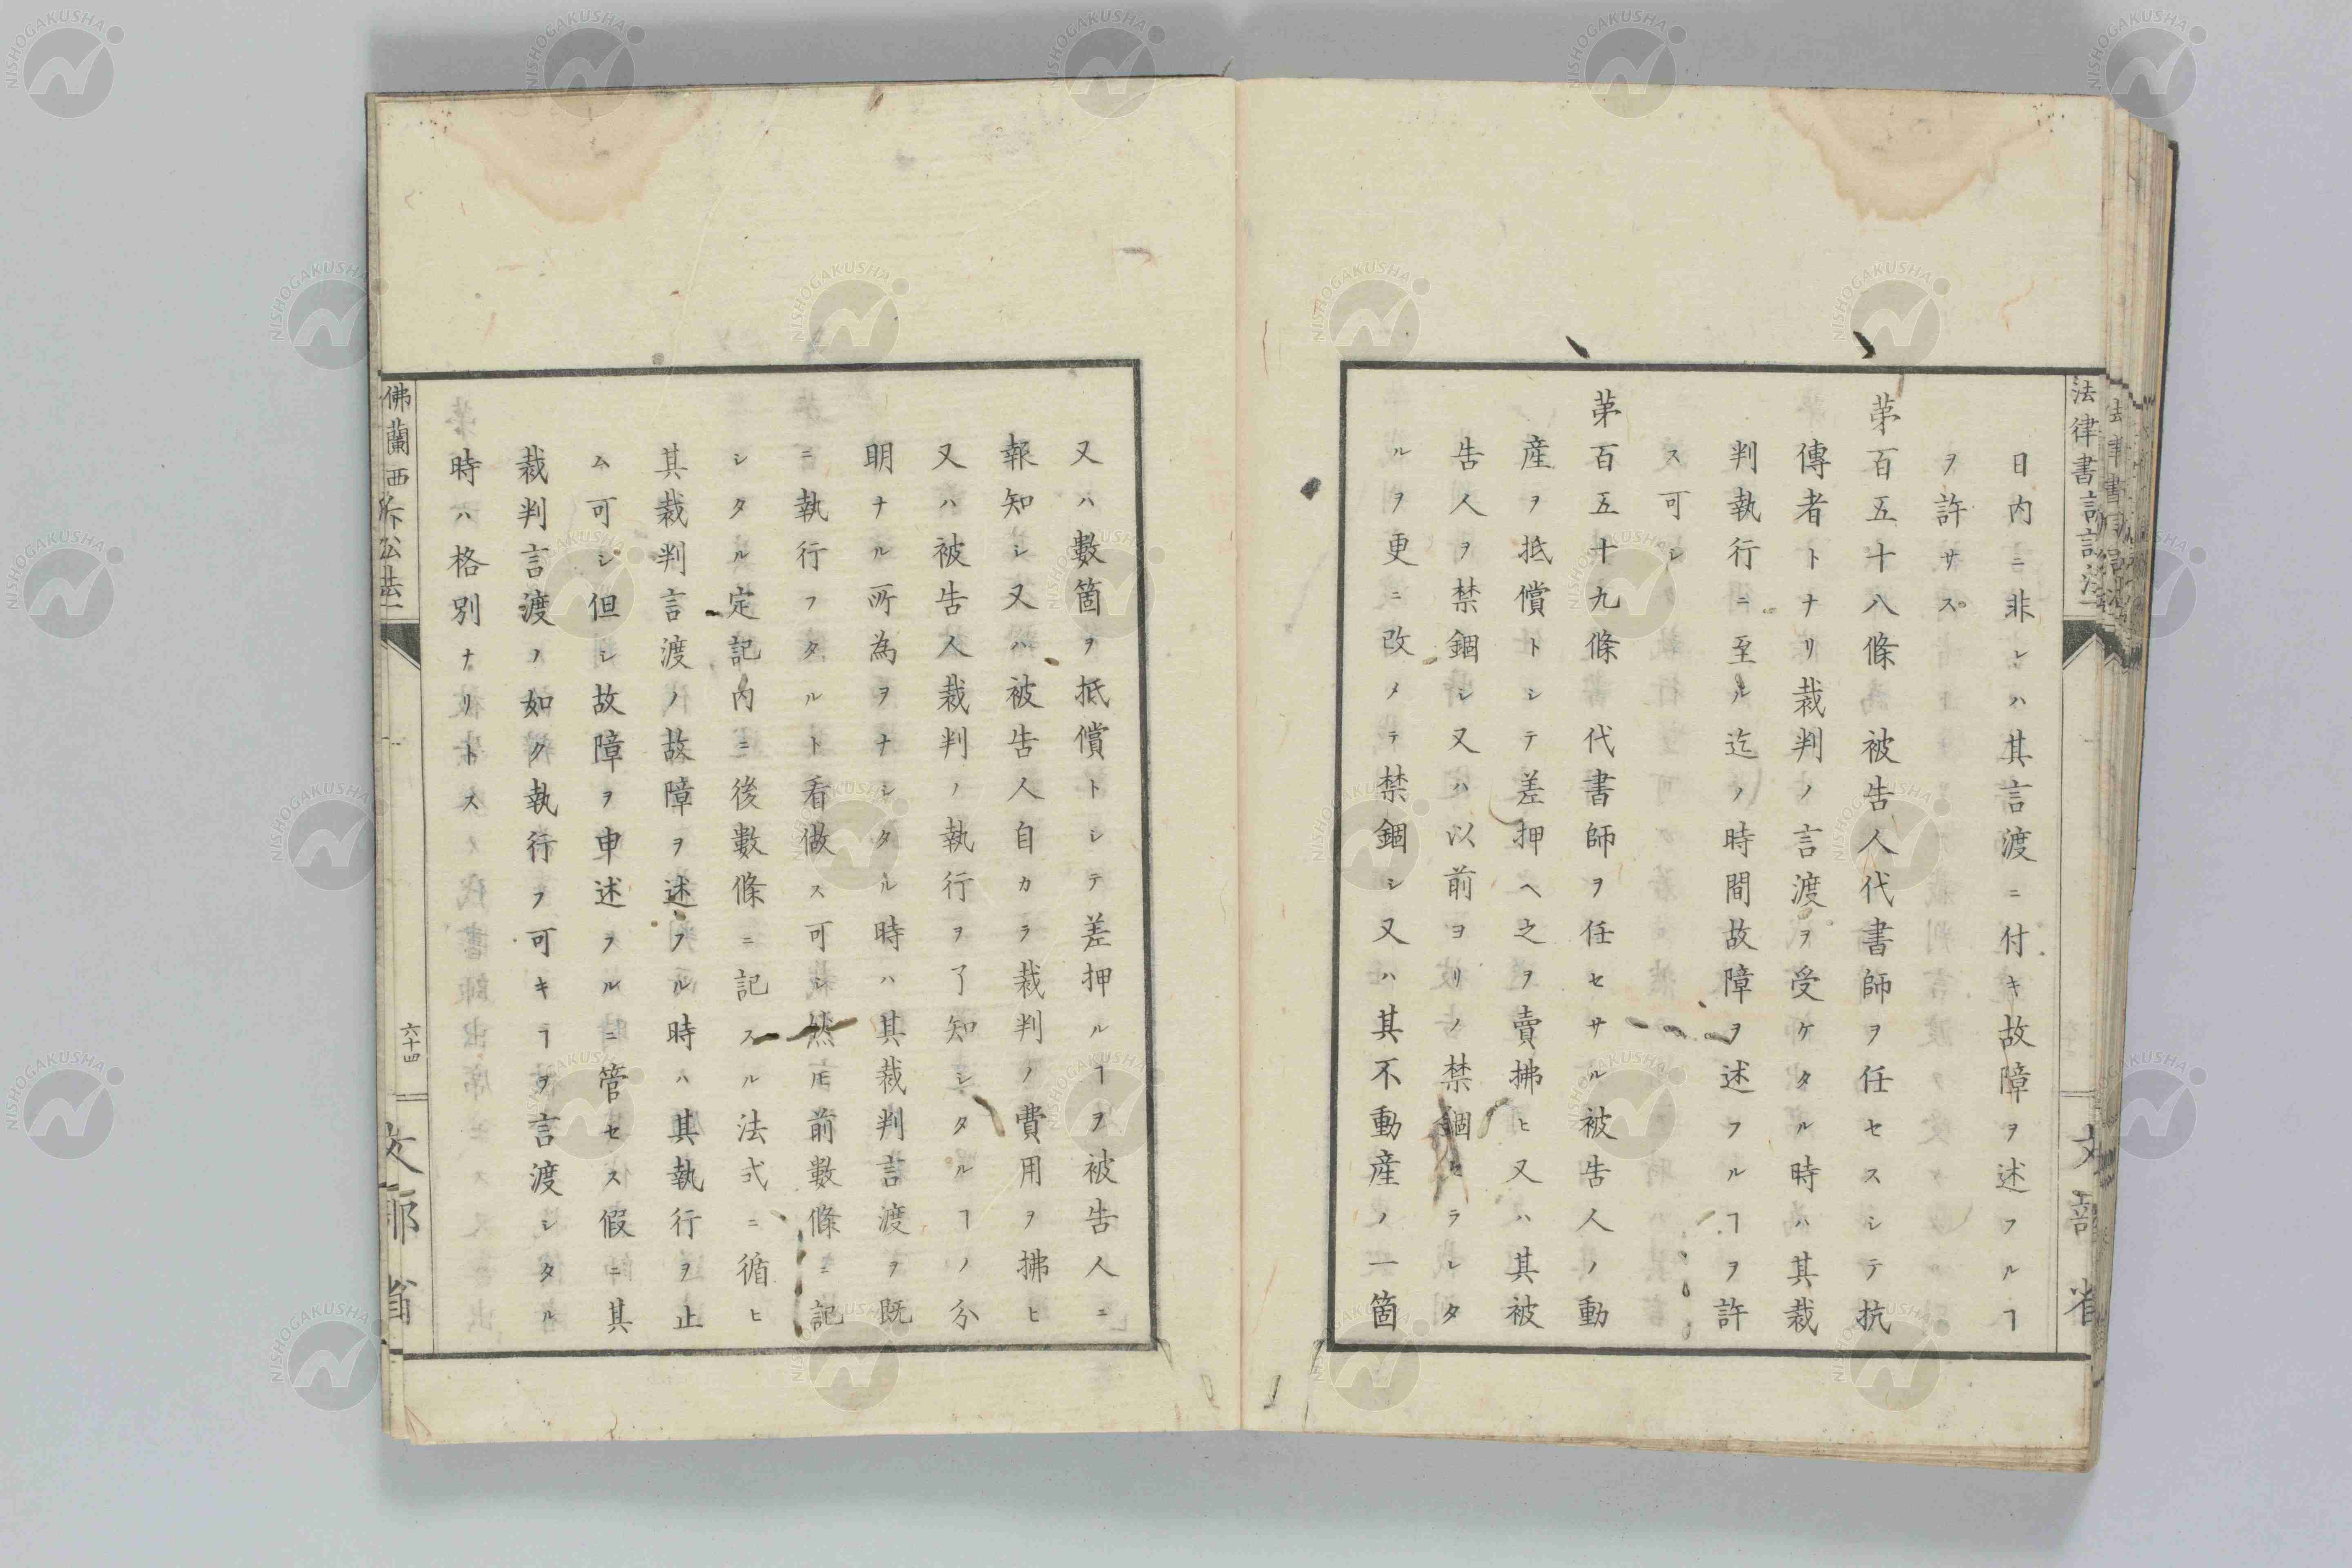 日内ニ非レハ其言渡ニ付キ故障ヲ述フルヿ
ヲ許サス
苐百五十八條 被告人代書師ヲ任セスシテ抗
傳者トナリ裁判ノ言渡ヲ受ケタル時ハ其裁
判執行ニ至ル迄ノ時間故障ヲ述フルヿヲ許
ス可シ
苐百五十九條 代書師ヲ任セサル被告人ノ動
産ヲ抵償トシテ差押ヘ之ヲ賣拂ヒ又ハ其被
告人ヲ禁錮シ又ハ以前ヨリノ禁錮セラレタ
ルヲ更ニ改メテ禁錮シ又ハ其不動産ノ一箇
文部省
又ハ數箇ヲ抵償トシテ差押ルヿヲ被告人ニ
報知シ又ハ被告人自カラ裁判ノ費用ヲ拂ヒ
又ハ被告人裁判ノ執行ヲ了知シタルヿノ分
明ナル所為ヲナシタル時ハ其裁判言渡ヲ既
ニ執行フタルト看做ス可シ然𪜈前數條ニ記
シタル定記内ニ後數條ニ記スル法式ニ循ヒ
其裁判言渡ノ故障ヲ述フル時ハ其執行ヲ止
ム可シ但シ故障ヲ申述フルニ管セス假ニ其
裁判言渡ノ如ク執行フ可キヿヲ言渡シタル
時ハ格別ナリトス
佛蘭西訴訟法一
六十四
文部省
NISHOGAKUSHA